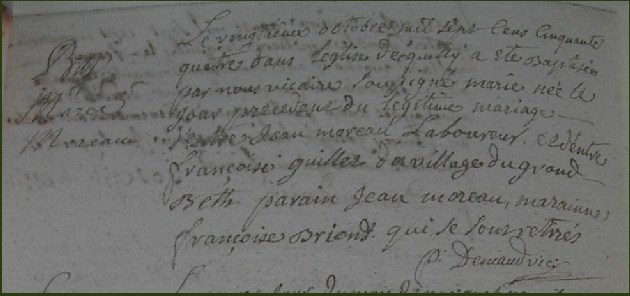 Bat.
Marie
Moreau
Le vingtieme octobre mil sept Cens Cinquante
quatre dans l'eglise de quilly a ete Baptisée
par nous vicaire soussigné marie née le
jour precedent du legitime mariage
d'entre Jean moreau Laboureur, et d'entre
françoise quiller du village du grand
Beth. parain Jean moreau, maraine
françoise Briend. qui se sont retirés